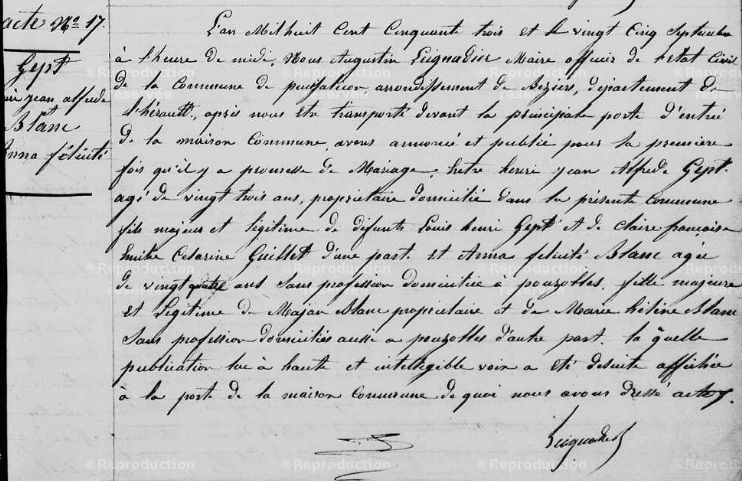 acte No 17.
Gept
jean alfred
Blanc
Anna félicité
L'an Mil huit Cent Cinquante trois et le vingt Cinq Septembre
à l'heure de midi, Nous Augustin Maire officier de l'état Civil
de la Commune de arrondissement de Béziers, département de
l'hérault, après nous etre transporté devant la principale porte d'entrée
de la maison Commune, avons annoncé et publié pour la première
fois qu'il y a promesse de Mariage, Entre henri jean Alfrede Gept.
agé de vingt trois ans, propriétaire domicilié dans la présente Commune
fils majeur et légitime de défunts Louis henri Gept et de Claire françoise
Emilie Cesarine Guillet d'une part. et Anna félicité Blanc agée
de vingt quatre ans sans profession domiciliée a pouzolles, fille majeure
et légitime de Majan Blanc propriétaire et de Marie héline Blanc
sans profession domiciliés aussi a pouzolles d'autre part. la quelle
publication lue à haute et intelligible voix a été desuite affichée
à la porte de la maison Commune de quoi nous avons dressé acte.
©Reproduction